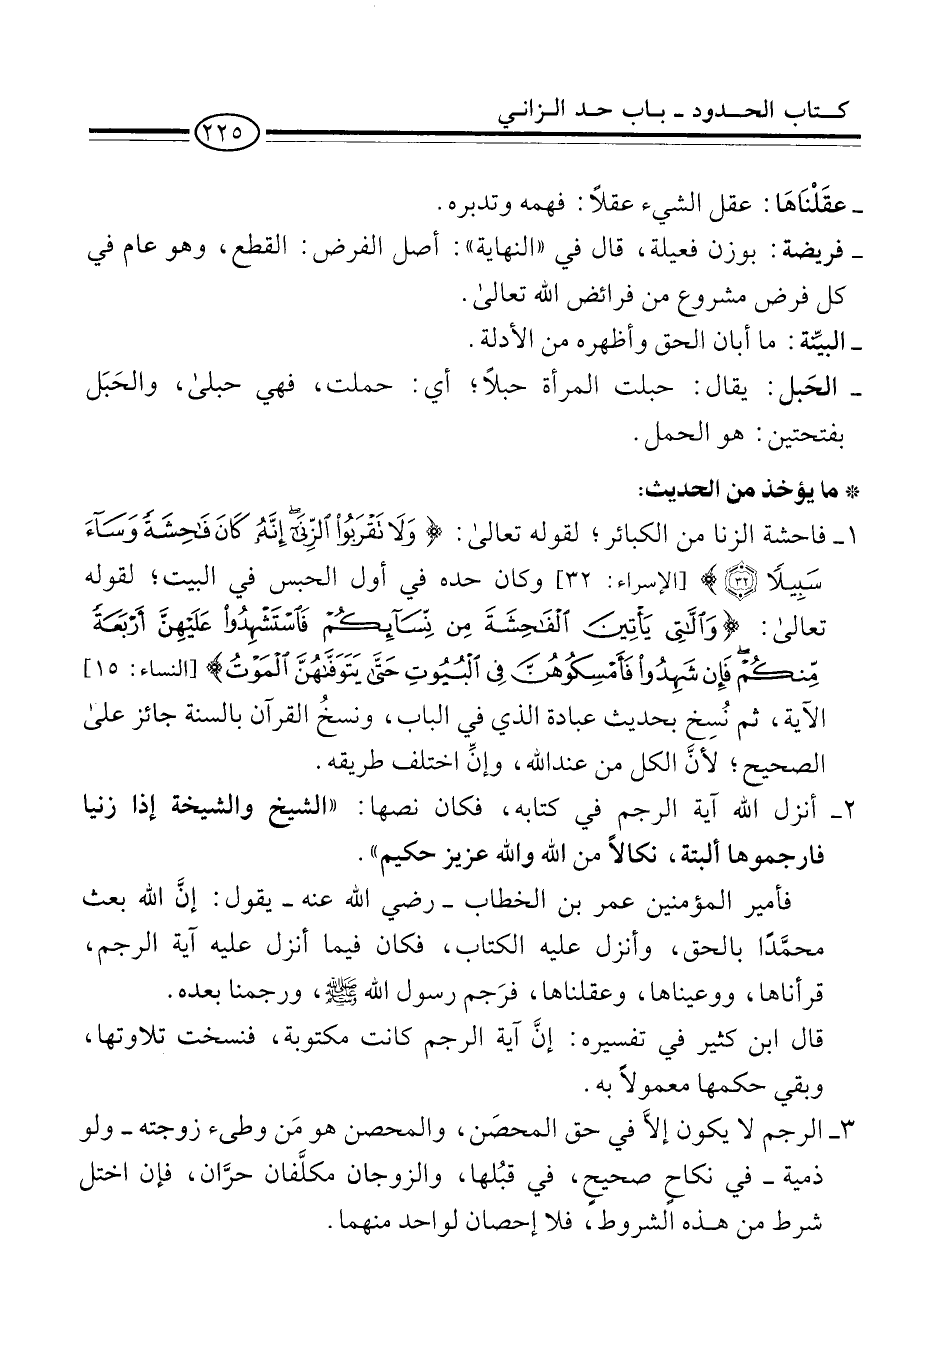 كتاب الحدود - باب حد الزاني
٢٢٥
ـ عقَلْنَاهَا: عقل الشيء عقلاً: فهمه وتدبره.
ـ فريضة: بوزن فعيلة، قال في «النهاية»: أصل الفرض: القطع، وهو عام في
كل فرض مشروع من فرائض الله تعالىٰ.
ـ البيِّنة: ما أبان الحق وأظهره من الأدلة.
ـ الحَبل: يقال: حبلت المرأة حبلاً؛ أي: حملت، فهي حبلىٰ، والحَبَل
بفتحتين: هو الحمل.
* ما يؤخذ من الحديث:
١ـ فاحشة الزنا من الكبائر؛ لقوله تعالىٰ: ﴿ وَلَا تَقْرَبُوا۟ ٱلزِّنَىٰٓ ۖ إِنَّهُۥ كَانَ فَـٰحِشَةً وَسَآءَ
سَبِيلًا ٣٢ ﴾ [الإسراء: ٣٢] وكان حده في أول الحبس في البيت؛ لقوله
تعالىٰ: ﴿ وَٱلَّـٰتِى يَأْتِينَ ٱلْفَـٰحِشَةَ مِن نِّسَآئِكُمْ فَٱسْتَشْهِدُوا۟ عَلَيْهِنَّ أَرْبَعَةً
مِّنكُمْ ۖ فَإِن شَهِدُوا۟ فَأَمْسِكُوهُنَّ فِى ٱلْبُيُوتِ حَتَّىٰ يَتَوَفَّىٰهُنَّ ٱلْمَوْتُ﴾ [النساء: ١٥]
الآية، ثم نُسِخ بحديث عبادة الذي في الباب، ونسخُ القرآن بالسنة جائز علىٰ
الصحيح؛ لأنَّ الكل من عندالله، وإنِ اختلف طريقه.
٢ـ أنزل الله آية الرجم في كتابه، فكان نصها: «الشيخ والشيخة إذا زنيا
فارجموها ألبتة، نكالاً من الله والله عزيز حكيم».
فأمير المؤمنين عمر بن الخطاب ـ رضي الله عنه ـ يقول: إنَّ الله بعث
محمَّدًا بالحق، وأنزل عليه الكتاب، فكان فيما أنزل عليه آية الرجم،
قرأناها، ووعيناها، وعقلناها، فرَجم رسول الله ﷺ، ورجمنا بعده.
قال ابن كثير في تفسيره: إنَّ آية الرجم كانت مكتوبة، فنسخت تلاوتها،
وبقي حكمها معمولاً به.
٣ـ الرجم لا يكون إلاَّ في حق المحصَن، والمحصن هو مَن وطىء زوجته ـ ولو
ذمية ـ في نكاحٍ صحيحٍ، في قبُلها، والزوجان مكلَّفان حرَّان، فإن اختل
شرط من هذه الشروط، فلا إحصان لواحد منهما.